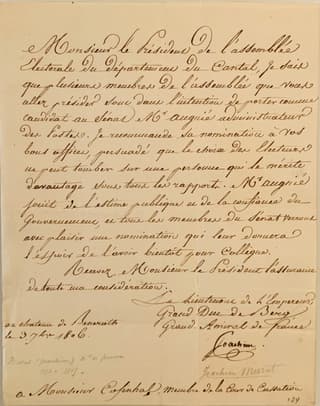 Monsieur le Président de l'assemblée
Electorale du Département du Cantal, Je sais
que plusieurs membres de l'assemblée que vous
allez présider sont dans l'intention de porter comme
candidat au Senat Mr. augnié administrateur
des Postes. Je recommande sa nomination à vos
bons offices, persuadé que le choix des Electeurs
ne peut tomber sur une personne qui le mérite
davantage sous tous les rapports. Mr. augnié
jouit de l'estime publique et de la confiance du
Gouvernement et tous les membres du Senat verront
avec plaisir une nomination qui leur donnera
l'espoir de l'avoir bientôt pour Collègue.
Recevez Monsieur le Président l'assurance
de toute ma consideration.
Le Lieutenant de l'Empereur,
Grand Duc de Berg
Grand Amiral de France
au chateau de Benrath
le 3 7bre 1806
Joachim
Joachim Murat
a Monsieur Cofinhal, membre de la Cour de Cassation